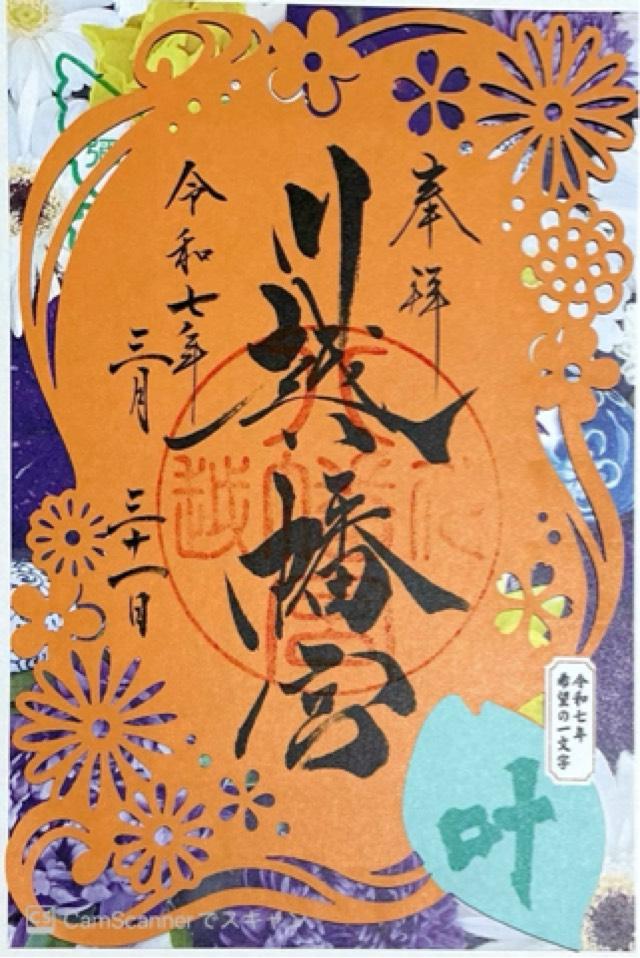 奉拝
川越八幡宮
令和七年
三月
三十一日
令和七年
希望の一文字
叶
CamScannerでスキャン